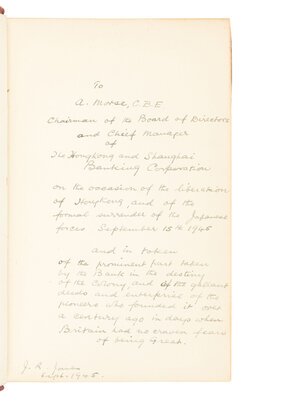 To
A. Morse, C.B.E
Chairman of the Board of Directors
and Chief Manager
of
The Hongkong and Shanghai
Banking Corporation
on the occasion of the liberation
of Hongkong and of the
formal surrender of the Japanese
forces September 15th 1945
and in token
of the prominent part taken
by the Bank in the destiny
of the Colony, and of the gallant
deeds and enterprise of the
pioneers who founded it over
a century ago in days when
Britain had no craven fears
of being Great.
J. R. Jones
Sept. 1945.